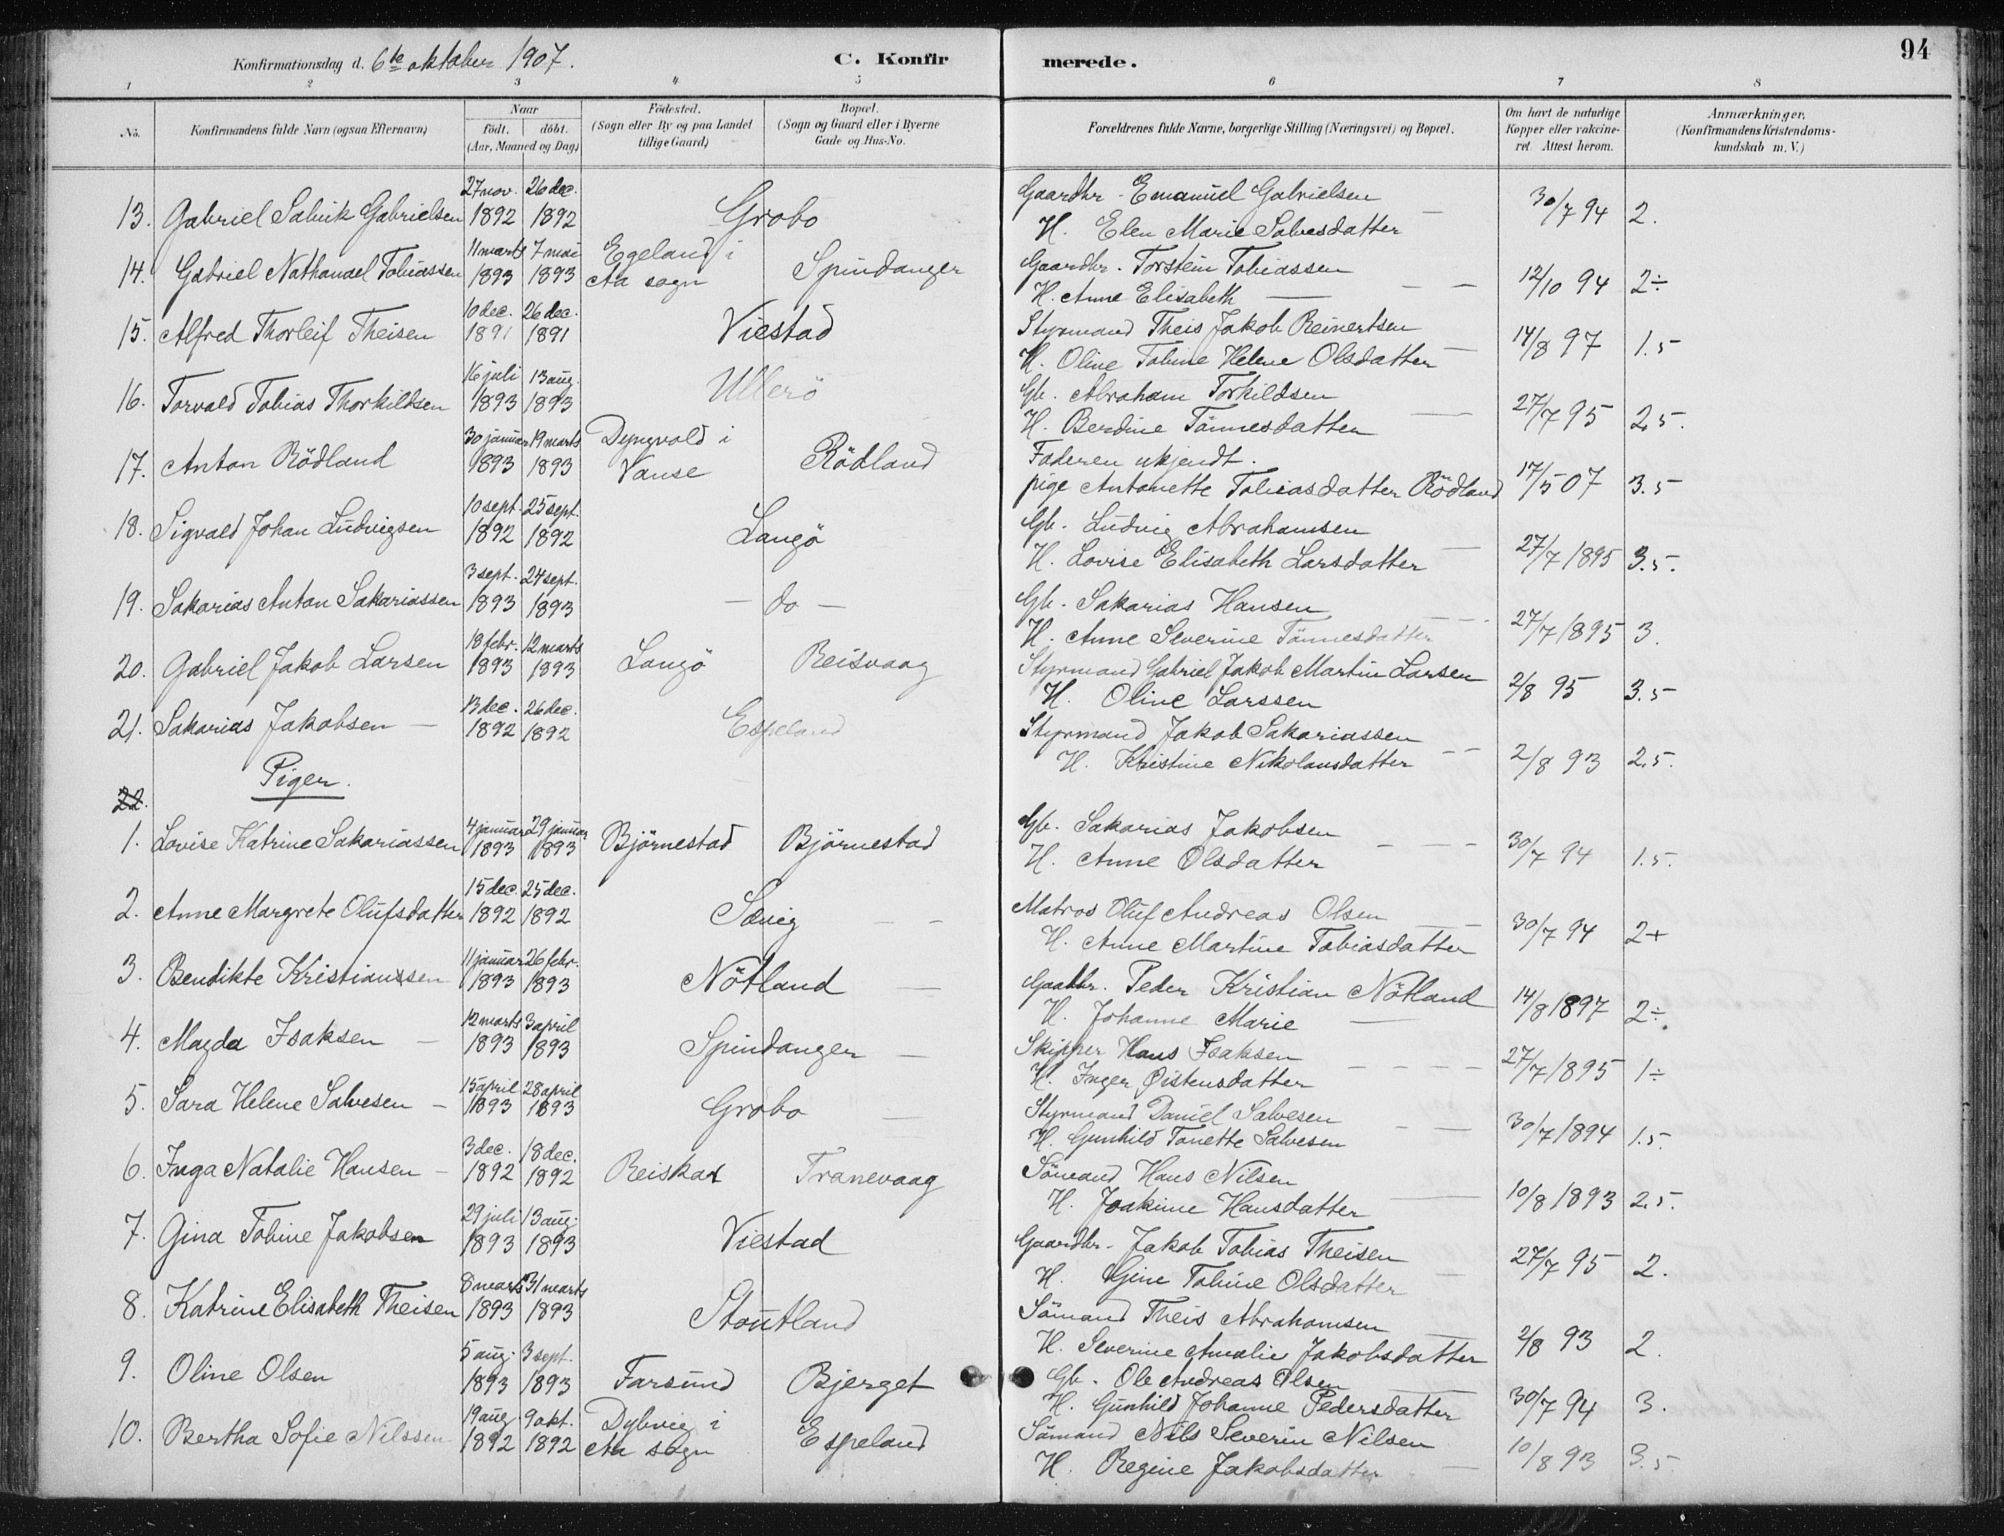 Konfirmationsdag d. 6te oktober 1907.
C. Konfirmerede.
94
1 2 3 4 5 6 7 8
No. Konfirmandens fulde Navn (ogsaa Efternavn) Naar födt. döbt. (Aar, Maaned og Dag) Födested. (Sogn eller By og paa Landet tillige Gaard) Bopæl. (Sogn og Gaard eller i Byerne Gade og Hus-No. Forældrenes fulde Navne, borgerlige Stilling (Næringsvei) og Bopæl. Om havt de naturlige Kopper eller vakcineret. Attest herom. Anmærkninger, (Konfirmandens Kristendomskundskab m. V.)
27 nov. 26 dec. Gaardbr. Emanuel Gabrielsen
13. Gabriel Salvik Gabrielsen 1892 1892 Grobo H. Elen Marie Salvesdatter 30/7 94 2.
11 marts 7 mai Egeland i Gaardbr. Torstein Tobiassen
14. Gabriel Nathanael Tobiassen 1893 1893 Aa sogn Spindanger H. Anne Elisabeth — 12/10 94 2÷
10 dec. 26 dec. Styrmand Theis Jakob Reinertsen
15. Alfred Thorleif Theisen 1891 1891 Viestad H. Oline Tobine Helene Olsdatter 14/8 97 1.5
16 juli 13 aug. Gb. Abraham Torkildsen
16. Torvald Tobias Thorkildsen 1893 1893 Ullerö H. Berdine Tönnesdatter 27/7 95 2,5.
30 januar 19 marts Dyngvold i Faderen ukjendt.
17. Anton Rödland 1893 1893 Vanse Rödland pige Antonette Tobiasdatter Rödland 17/5 07 3.5
10 sept. 25 sept. Gb. Ludvig Abrahamsen
18. Sigvald Johan Ludvigsen 1892 1892 Langö H. Lovise Elisabeth Larsdatter 27/7 1895 3.5.
3 sept. 24 sept. Gb. Sakarias Hansen
19. Sakarias Anton Sakariassen 1893 1893 — do — H. Anne Severine Tönnesdatter 27/7 1895 3.
18 febr. 12 marts Styrmand Gabriel Jakob Martin Larsen
20. Gabriel Jakob Larsen 1893 1893 Langö Reisvaag H. Oline Larssen 2/8 95 3.5
13 dec. 26 dec. Styrmand Jakob Sakariassen
21. Sakarias Jakobsen — 1892 1892 Espeland H. Kristine Nikolausdatter 2/8 93 2.5.
Piger.
22.
4 januar 29 januar Gb. Sakarias Jakobsen
1. Lovise Katrine Sakariassen 1893 1893 Björnestad Björnestad H. Anne Olsdatter 30/7 94 1.5.
15 dec. 25 dec. Matros Oluf Andreas Olsen
2. Anne Margrete Olufsdatter 1892 1892 Sævig H. Anne Martine Tobiasdatter 30/7 94 2+
11 januar 26 febr. Gaardbr. Peder Kristian Nötland
3. Bendikte Kristianssen 1893 1893 Nötland H. Johanne Marie — 14/8 1897 2÷.
12 marts 3 april Skipper Hans Isaksen
4. Magda Isaksen — 1893 1893 Spindanger H. Inger Øistensdatter 27/7 1895 1÷
15 april 28 april Styrmand Daniel Salvesen
5. Sara Helene Salvesen — 1893 1893 Grobo H. Gunhild Tonette Salvesen 30/7 1894 1.5.
3 dec. 18 dec. Sömand Hans Nilsen
6. Inga Natalie Hansen — 1892 1892 Reiskar Tranevaag H. Joakime Hansdatter 10/8 1893 2.5.
29 juli 13 aug. Gaardbr. Jakob Tobias Theisen
7. Gina Tobine Jakobsen 1893 1893 Viestad H. Gine Tobine Olsdatter 27/7 95 2.
8 marts 31 marts Sömand Theis Abrahamsen
8. Katrine Elisabeth Theisen 1893 1893 Stoutland H. Severine Amalie Jakobsdatter 2/8 93 2.
5 aug. 3 sept. Gb. Ole Andreas Olsen
9. Oline Olsen 1893 1893 Farsund Bjerget H. Gunhild Johanne Pedersdatter 30/7 94 3.
19 aug. 9 okt. Dybvig i Sömand Nils Severin Nilsen
10. Bertha Sofie Nilssen 1892 1892 Aa sogn Espeland H. Regine Jakobsdatter 10/8 93 3.5